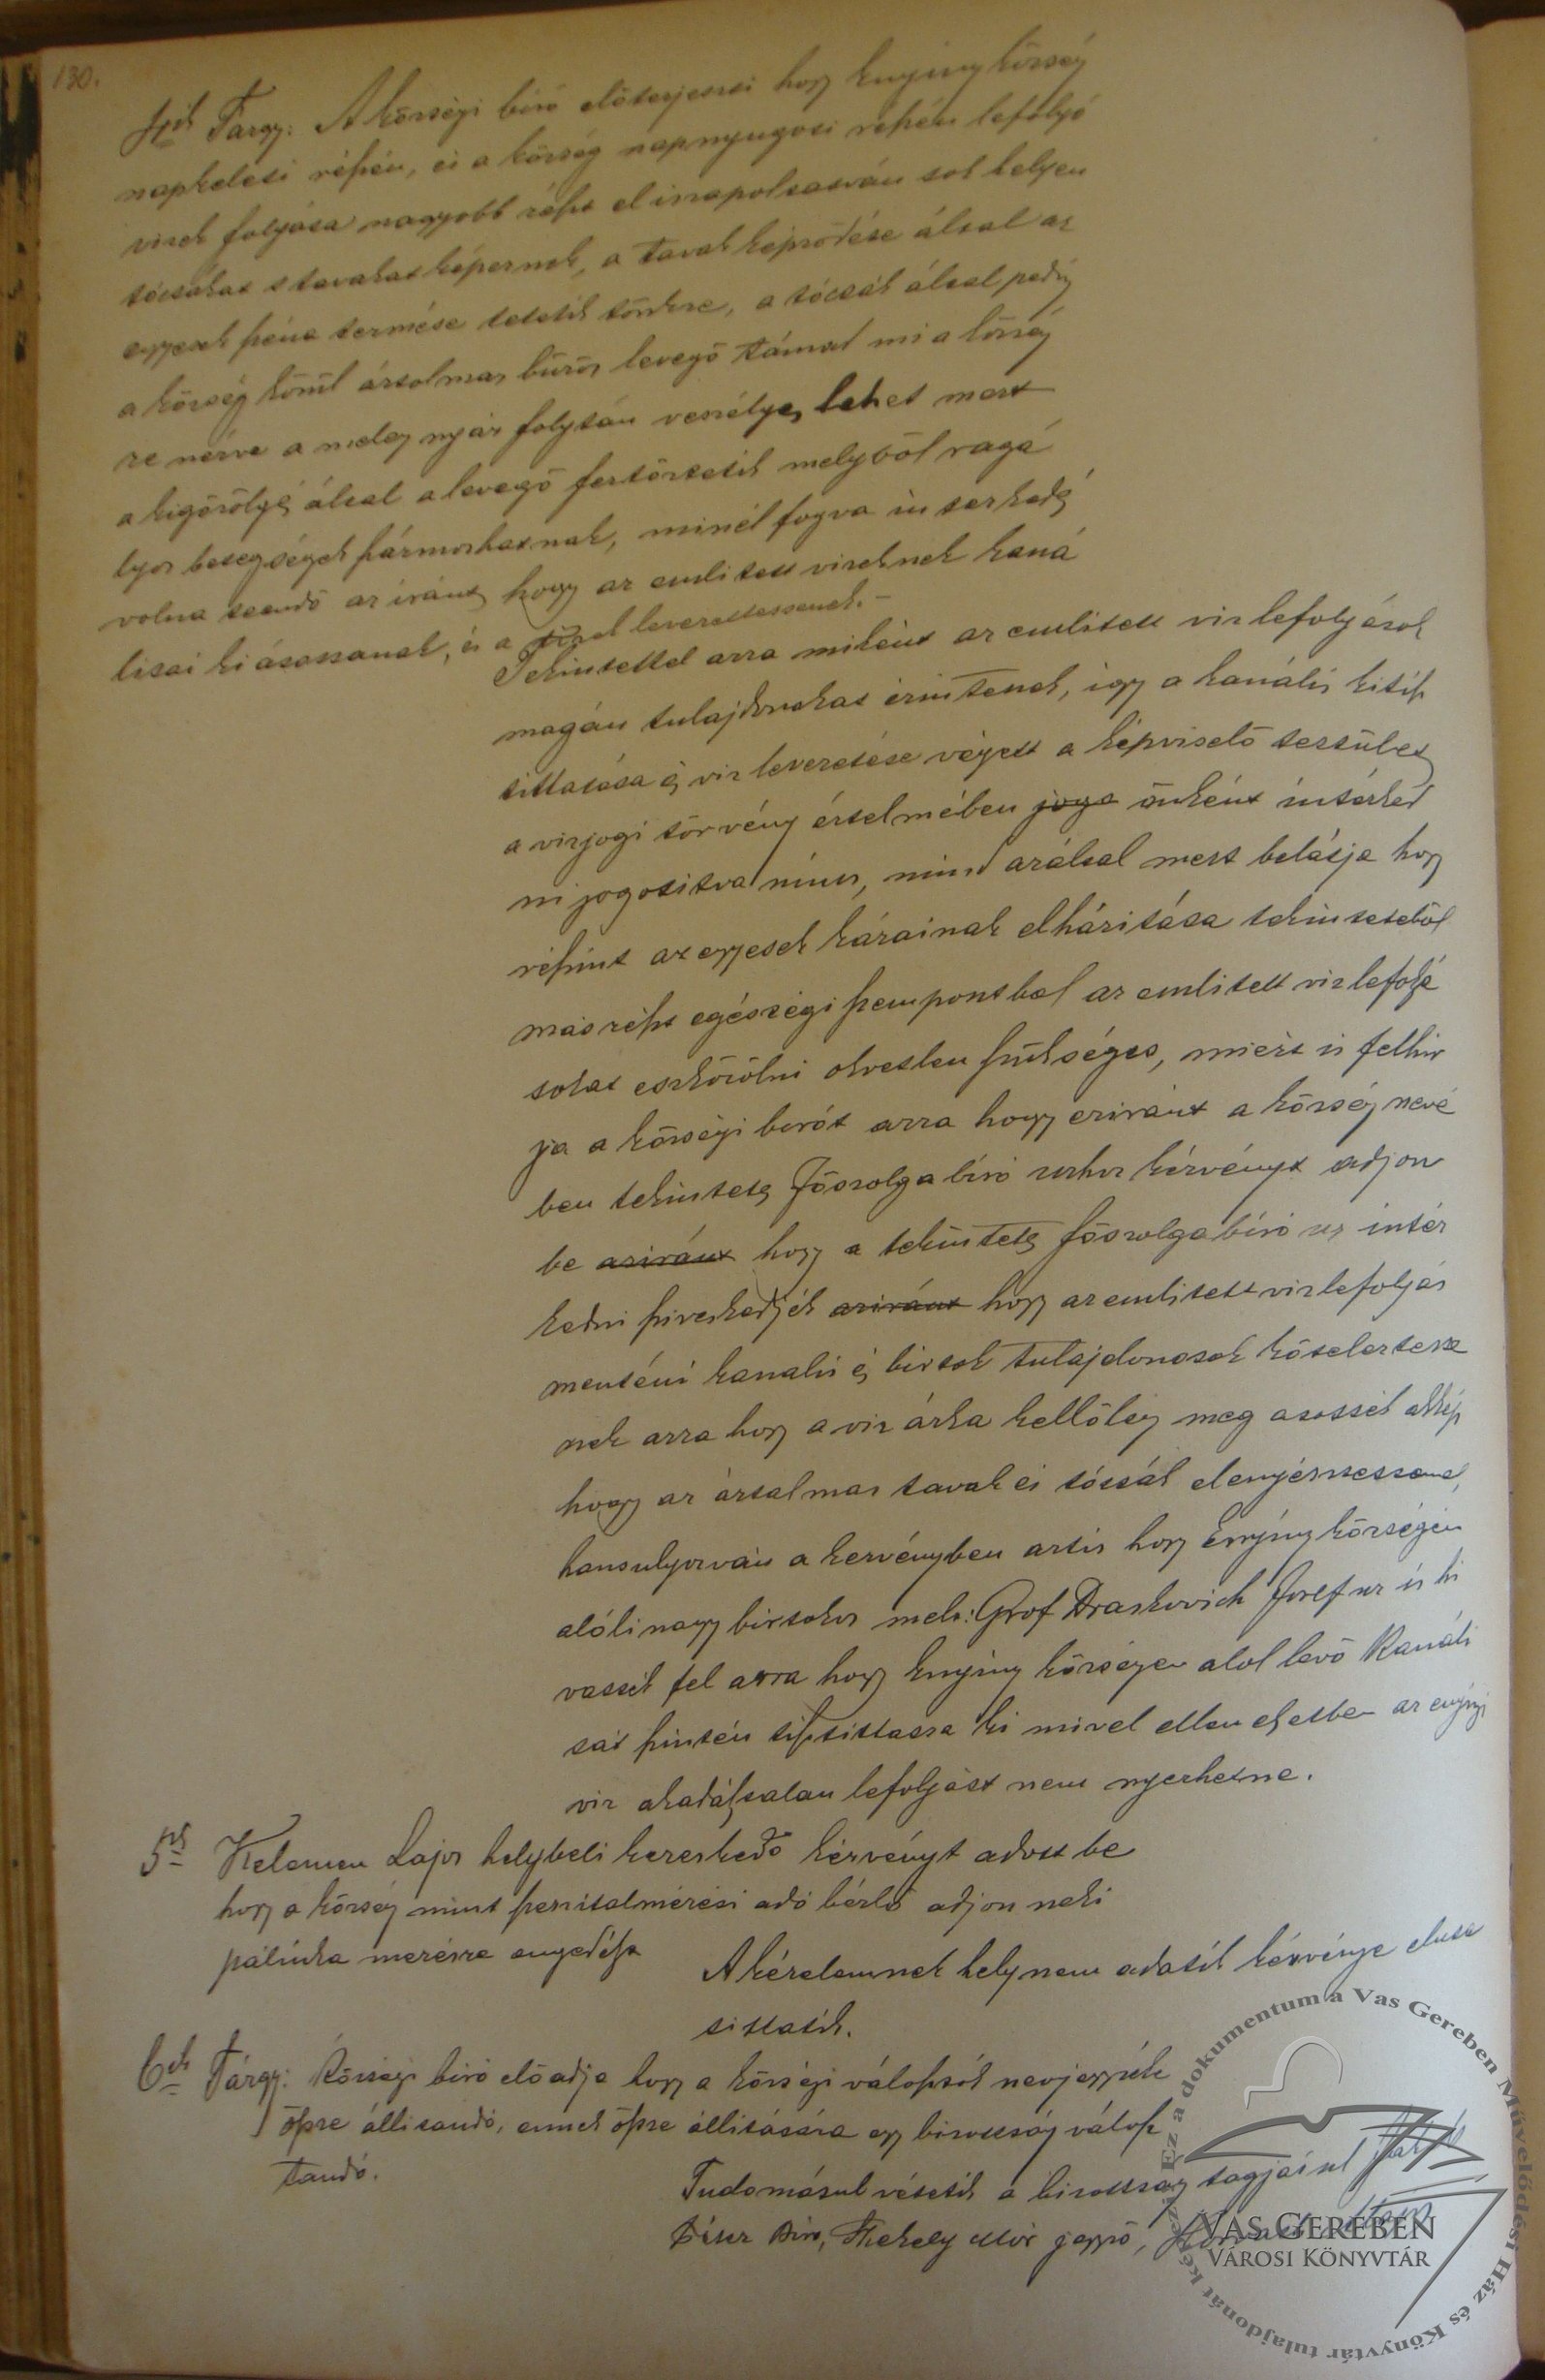 130.
4ik Tárgy: A községi biró előterjeszti hogy Enying község
napkeleti részén, és a község napnyugoti részén lefolyó
vizek folyása nagyobb részt el iszapoltatván sok helyen
tócsákat s tavakat képeznek, a tavak képződése által az
egyesek széna termése tétetik tönkre, a tócsák által pedig
a község körül ártalmas bűzös levegő támad mi a község
re nézve a meleg nyár folytán veszélyes lehet mert
a kigőzölgés által a levegő fertőztetik melyből ragá
lyos betegségek származhatnak, minél fogva intézkedés
volna teendő az iránt hogy az emlitett vizeknek kaná
lisai ki ásassanak, és a vizek levezettessenek. –
Tekintettel arra miként az emlitett viz lefolyások
magán tulajdonokat érintenek, igy a kanális kitisz
tittatása és viz levezetése végett a képviselő testület
a vizjogi törvény értelmében joga önként intézked
ni jogositva nincs, mind azáltal mert belátja hogy
részint az egyesek kárainak elháritása tekintetéből
másrészt egészségi szempontból az emlitett viz lefolyá
sokat eszközölni okvetlen szükséges, miért is felhiv
ja a községi birót arra hogy eziránt a község nevé
ben tekintetes Főszolgabiró urhoz kérvényt adjon
be aziránt hogy a tekintetes főszolgabiró ur intéz
kedni sziveskedjék aziránt hogy az emlitett viz lefolyás
menténi kanalis és birtok tulajdonosok köteleztesse
nek arra hogy a viz árka kellőleg meg asassék akkép
hogy az ártalmas tavak és tócsák elenyésszessenek,
hansulyozván a kérvényben aztis hogy Enying községén
alóli nagy birtokos mélt: Grof Draskovich Josef ur is hi
vassék fel arra hogy Enying községen alol levő Kanáli
sát szintén tisztittassa ki mivel ellen esetben az enyingi
viz akadálytalan lefolyást nem nyerhetne.
5ik Kelemen Lajos helybeli kereskedő kérvényt adott be
hogy a község mint szeszitalmérési adó bérlő adjon neki
pálinka mérésre engedélyt
A kérelemnek hely nem adatik kérvénye eluta
sittatik.
6ik Tárgy: Községi biró előadja hogy a községi választók nevjegyzéke
össze állitandó, ennek össze állitására egy bizottság válasz
tandó.
Tudomásul vétetik a bizottság tagjáiul
Biró, Szekely Mór jegyző, Horváth
VAS GEREBEN
VÁROSI KÖNYVTÁR
Ez a dokumentum a Vas Gereben Művelődési Ház és Könyvtár tulajdonát képezi